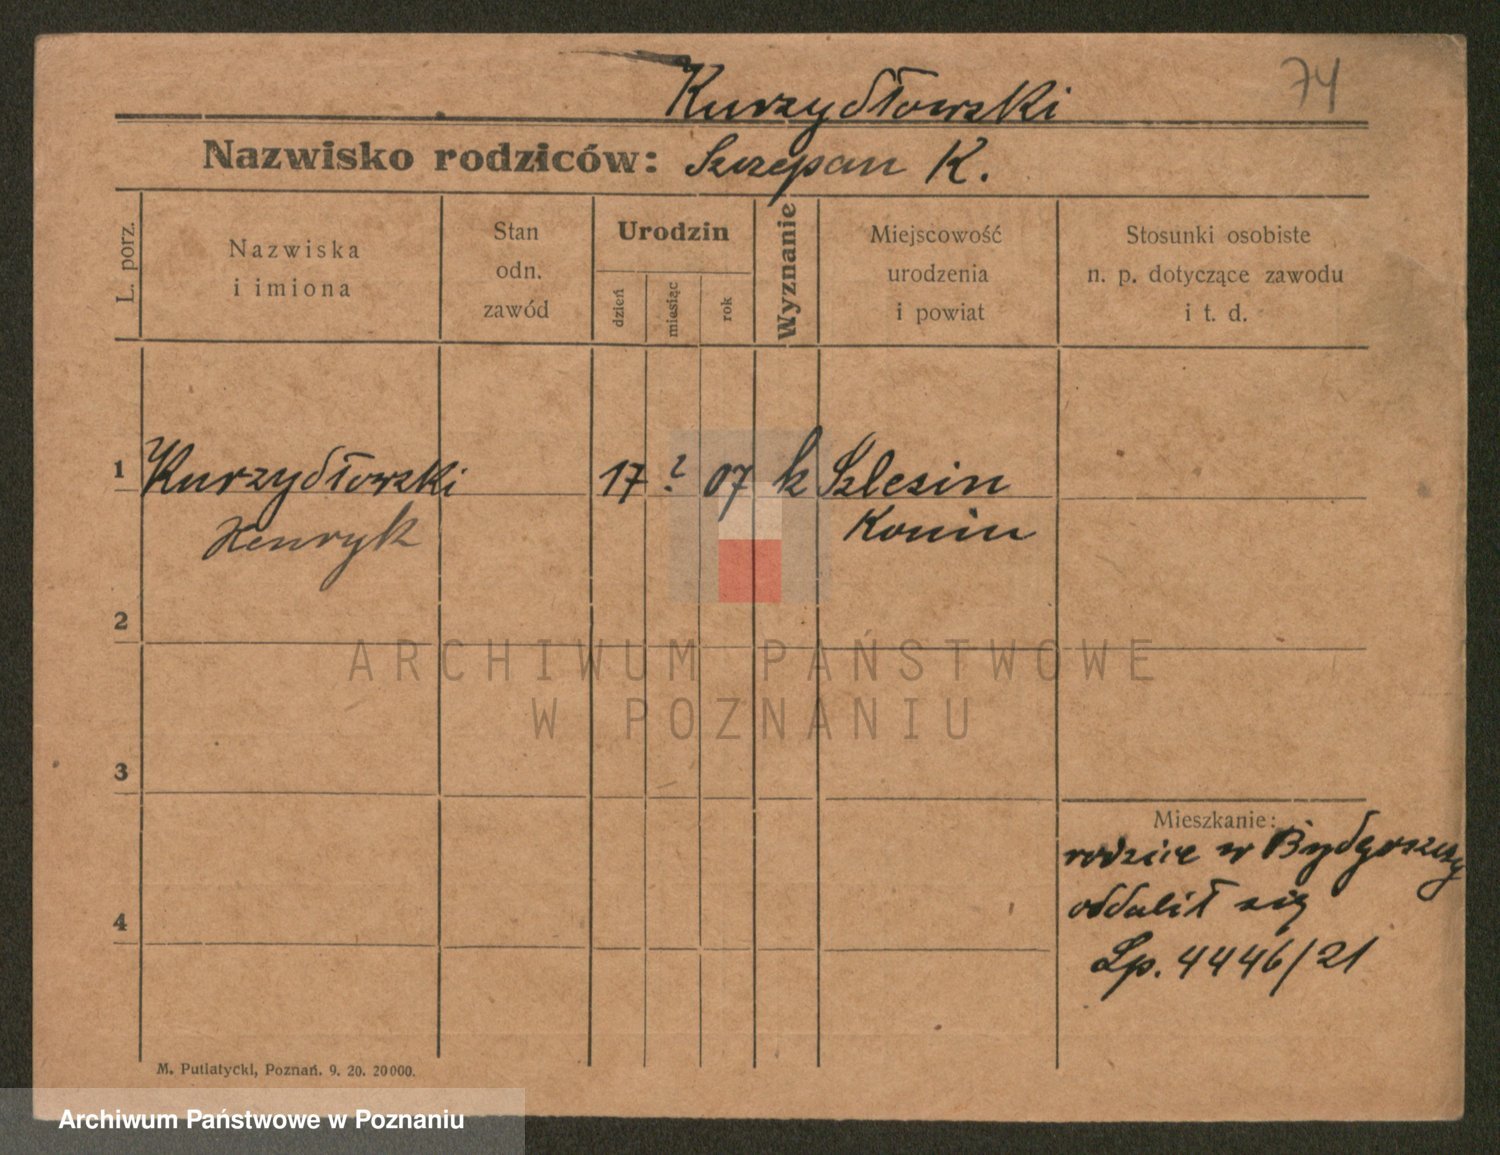 74
Kurzydłowski
Nazwisko rodziców: Szczepan K.
L. porz.
Nazwiska
i imiona
Stan
odn.
zawód
Urodzin
dzień
miesiąc
rok
Wyznanie
Miejscowość
urodzenia
i powiat
Stosunki osobiste
n. p. dotyczące zawodu
i t. d.
1 Kurzydłowski 17 ? 07 k Szlesin
Henryk Konin
2
ARCHIWUM PAŃSTWOWE
W POZNANIU
3
Mieszkanie:
rodzice w Bydgoszczy
4 oddalił się
Lp. 4446/21
M. Putiatycki, Poznań. 9. 20. 20000.
Archiwum Państwowe w Poznaniu